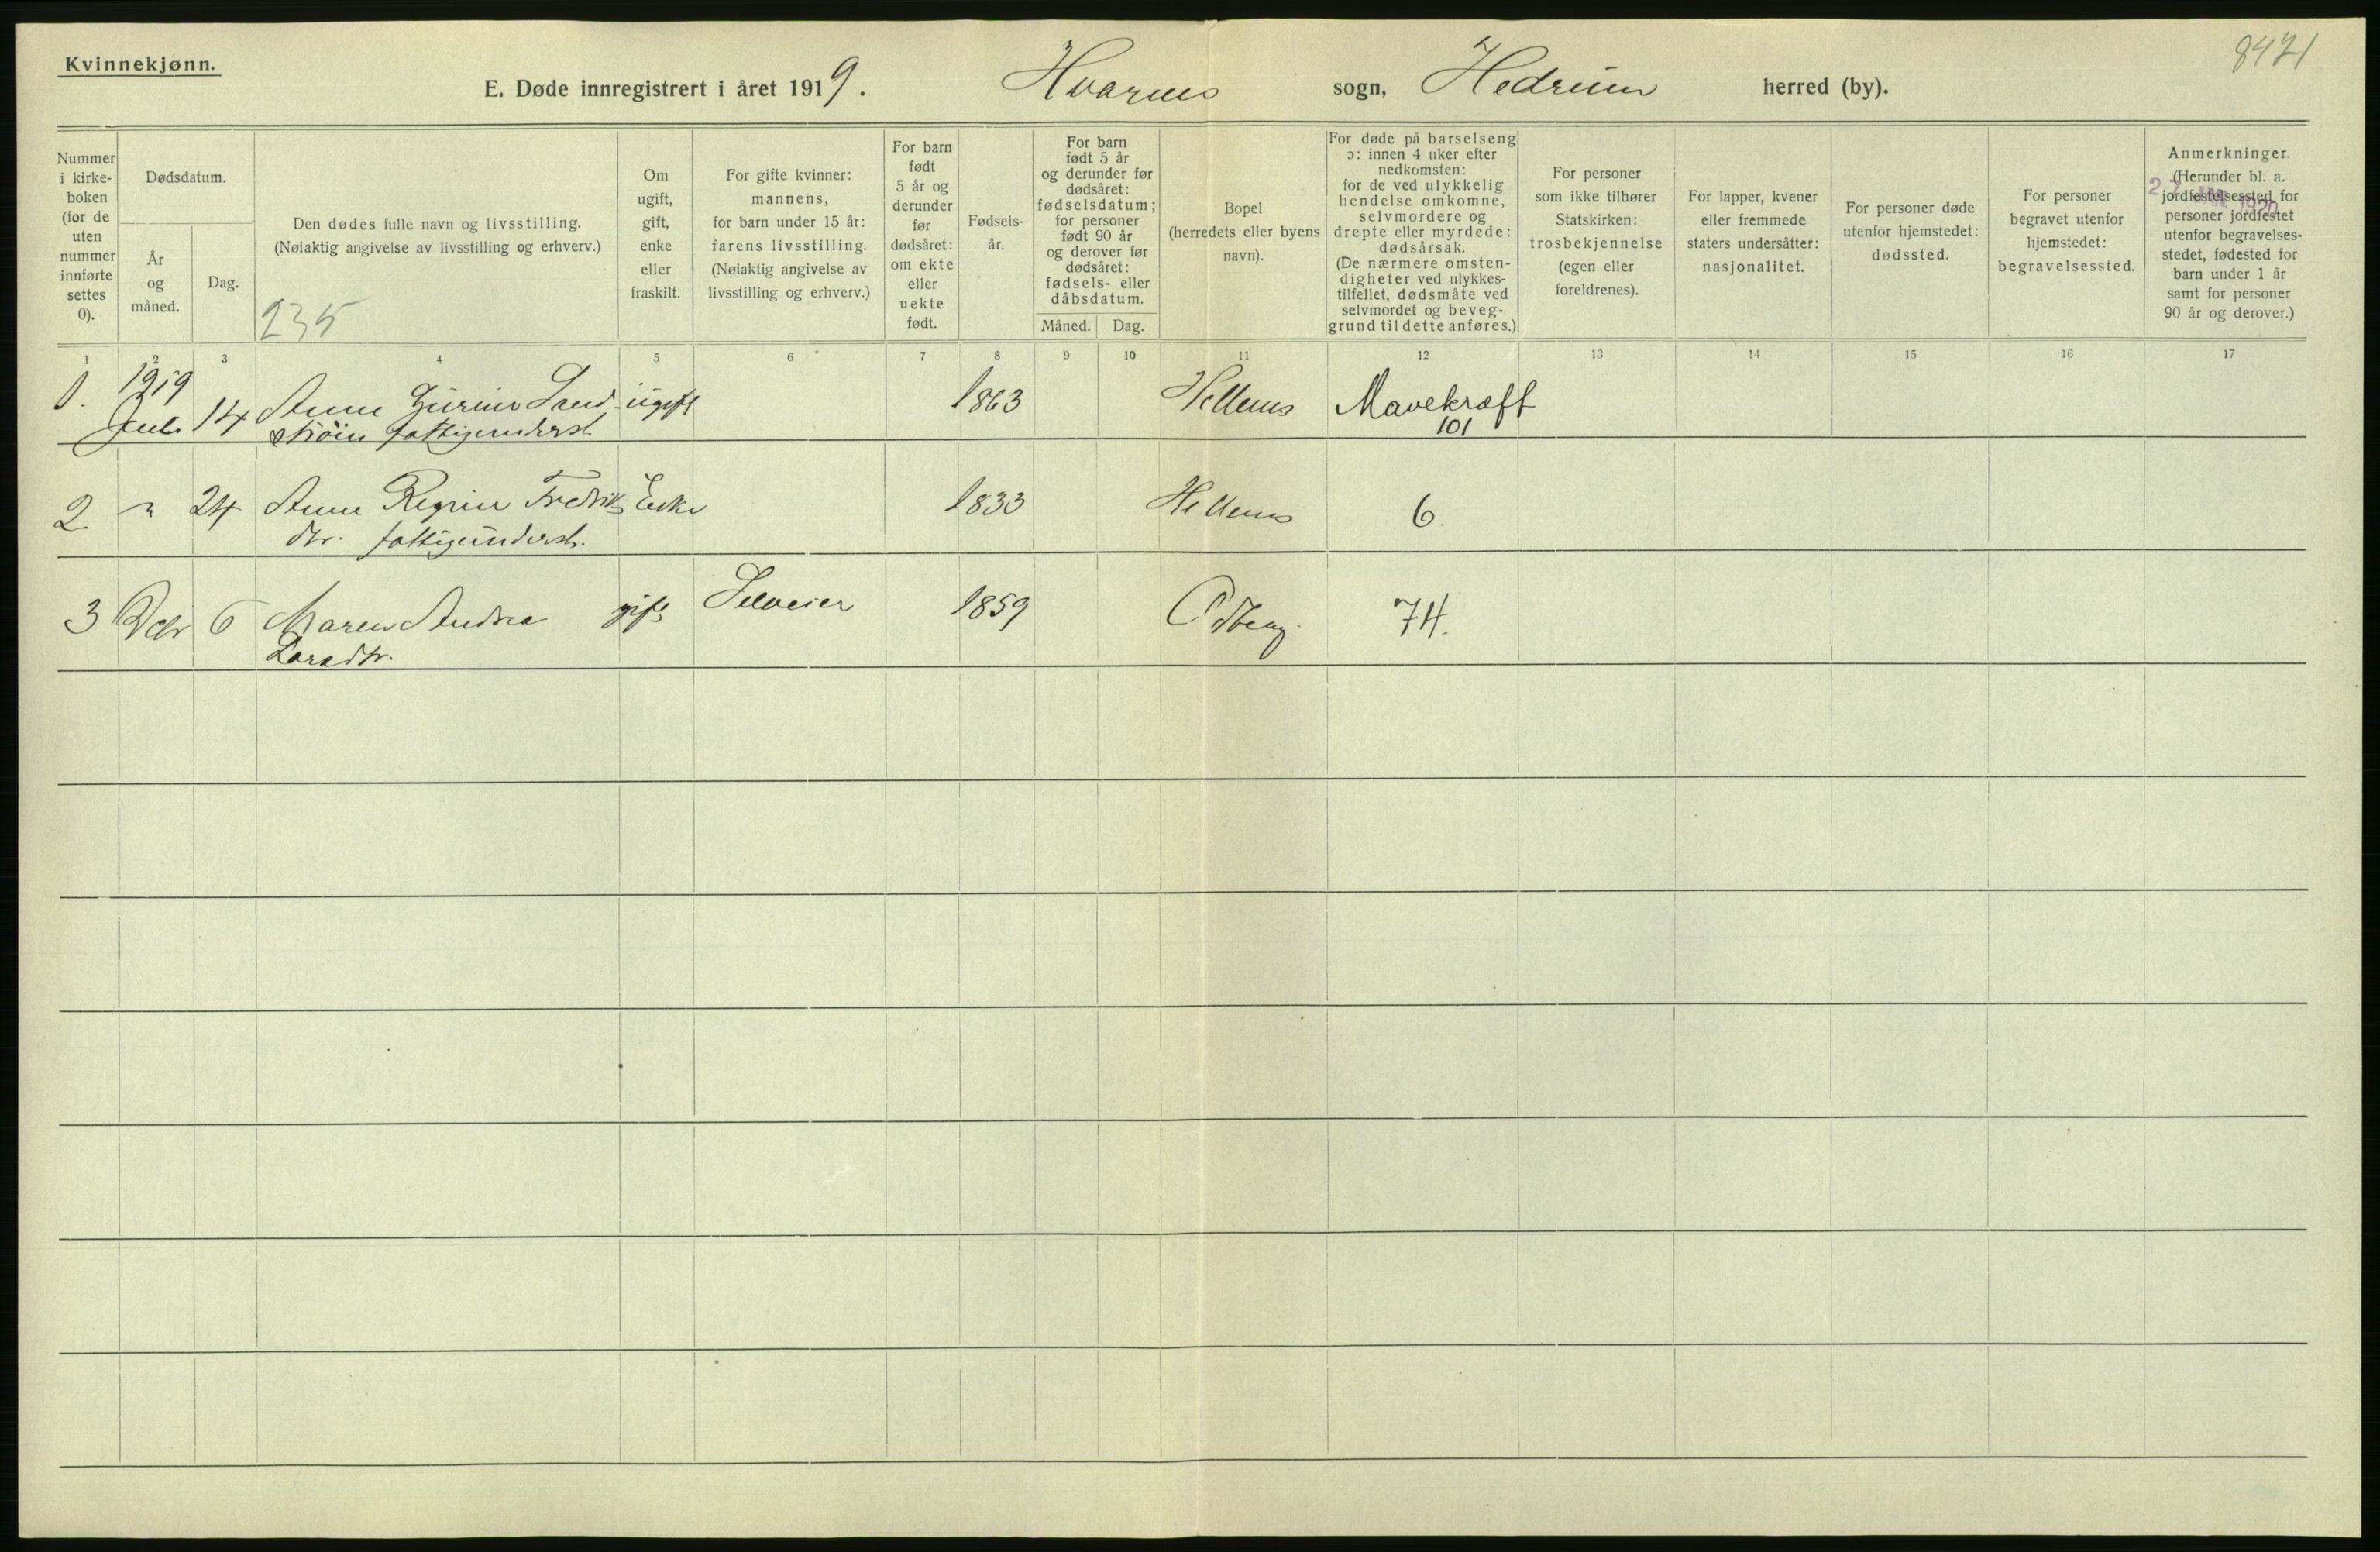 Kvinnekjønn.
8421
E. Døde innregistrert i året 1919. Hvarnes sogn, Hedrum herred (by).
Nummer i kirke-boken (for de uten nummer innførte settes 0).
Dødsdatum.
År og måned.
Dag.
Den dødes fulle navn og livsstilling.
(Nøiaktig angivelse av livsstilling og erhverv.)
235
Om ugift, gift, enke eller fraskilt.
For gifte kvinner: mannens, for barn under 15 år: farens livsstilling. (Nøiaktig angivelse av livsstilling og erhverv.)
For barn født 5 år og derunder før dødsåret: om ekte eller uekte født.
Fødsels-år.
For barn født 5 år og derunder før dødsåret: fødselsdatum; for personer født 90 år og derover før dødsåret: fødsels- eller dåbsdatum.
Måned. Dag.
Bopel (herredets eller byens navn).
For døde på barselseng ɔ: innen 4 uker efter nedkomsten: for de ved ulykkelig hendelse omkomne, selvmordere og drepte eller myrdede: dødsårsak. (De nærmere omsten-digheter ved ulykkes-tilfellet, dødsmåte ved selvmordet og beveg-grund til dette anføres.)
For personer som ikke tilhører Statskirken: trosbekjennelse (egen eller foreldrenes).
For lapper, kvener eller fremmede staters undersåtter: nasjonalitet.
For personer døde utenfor hjemstedet: dødssted.
For personer begravet utenfor hjemstedet: begravelsessted.
Anmerkninger. (Herunder bl. a. jordfestelsessted for personer jordfestet utenfor begravelses-stedet, fødested for barn under 1 år samt for personer 90 år og derover.)
1 2 3 4 5 6 7 8 9 10 11 12 13 14 15 16 17
1. 1919 Juli 14 Anne Gurine Sand- ugift 1863 Hellenes Mavekræft
strøm fattigunderst. 101
2 " 24 Anne Regine Fredriks Enke 1833 Hellenes 6.
dtr. fattigunderst.
3 Dcbr 6 Maren Andrea gift Selveier 1859 Odberg 74.
Larsdtr.